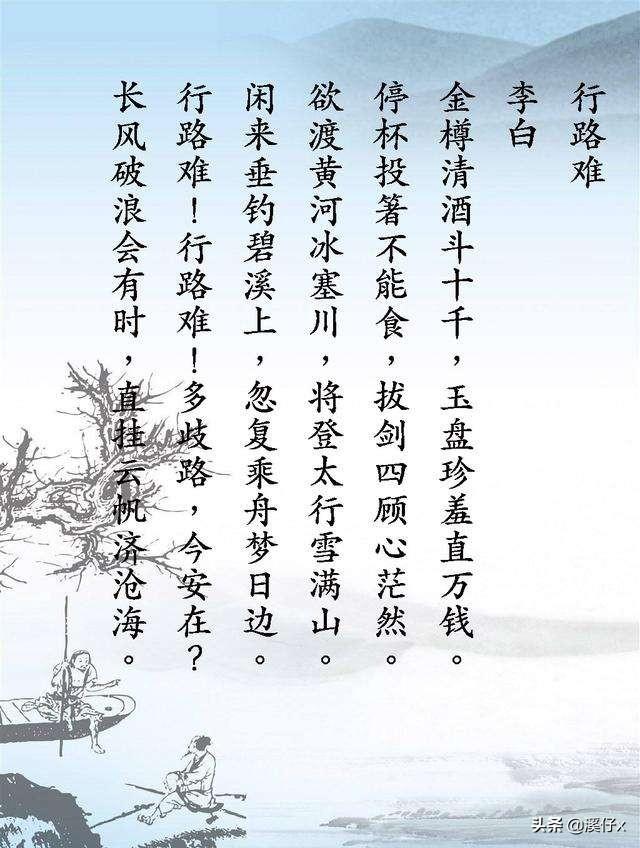 行路难
李白
金樽清酒斗十千，玉盘珍羞直万钱。
停杯投箸不能食，拔剑四顾心茫然。
欲渡黄河冰塞川，将登太行雪满山。
闲来垂钓碧溪上，忽复乘舟梦日边。
行路难！行路难！多歧路，今安在？
长风破浪会有时，直挂云帆济沧海。
头条 @溪仔x